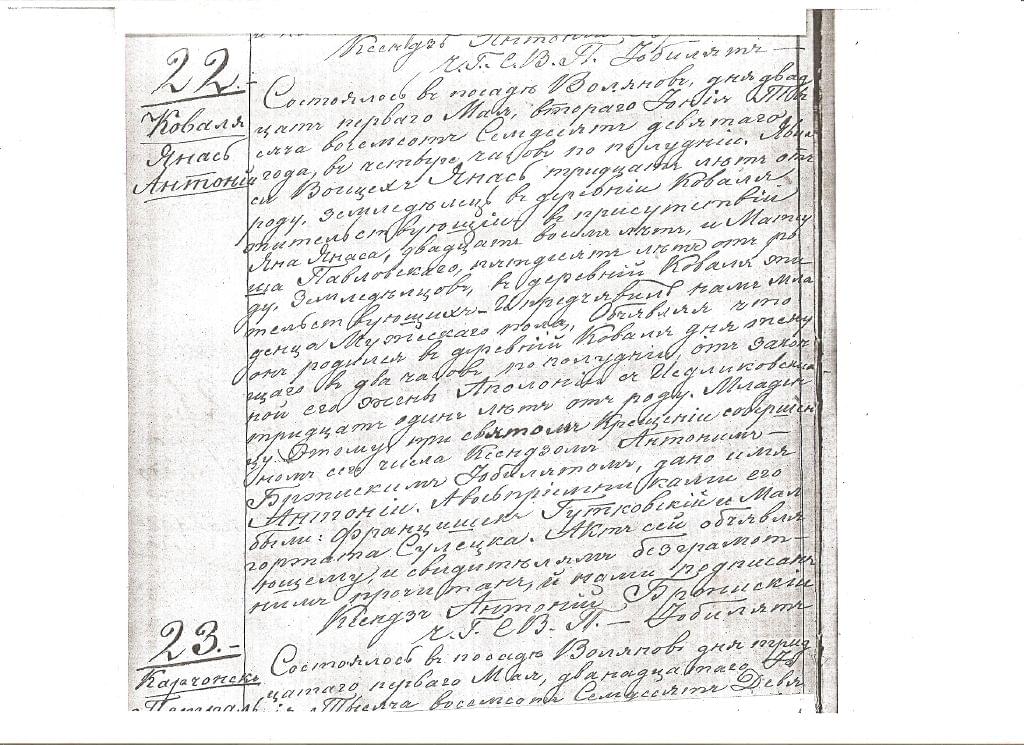 Ксендзъ Антоній
ч. Г. С. В. П. Юбилятъ —
22.-
Коваля
Янасъ
Антоній
Состоялось въ посадѣ Воляновѣ, дня двад
цать перваго Мая, втораго Іюнія Ты
сяча восемсотъ Семдесятъ девятаго
года, въ четыре часовъ по полудніи. Явил
ся Войцехъ Янасъ тридцать лѣтъ отъ
роду, земледѣлецъ въ деревніи Коваля
жительствующій въ присутствіи
Яна Янаса, двадцать восемъ лѣтъ, и Матеу
ша Павловскаго, пятдесятъ лѣтъ отъ ро
ду, Земледѣлцовъ, въ деревніи Коваля жи
тельствующихъ - И предъявилъ намъ мла
денца Мужескаго пола, Объявляя что
онъ родился въ деревніи Коваля дня
щаго въ два часовъ по полудніи, отъ закон
ной его жены Аполоніи съ
тридцать одинъ лѣтъ отъ роду. Младен
цу Этому при святомъ Крещеніи совершен
номъ сего числа Ксендзомъ Антонимъ —
Юбилятомъ, дано имя
Антоній. А воспріемниками его
были: Францишекъ Гутковскій и Мал
горжата Сулецка. Актъ сей объявля
ющему, и свидѣтѣлямъ безграмот-
нимъ прочитанъ, и нами подписанъ
Ксендзъ Антоній
ч. Г. С В. П. — Юбилятъ
23.-
Состоялось въ посадѣ Воляновѣ дня трид
цатаго перваго Мая, дванадцатаго Ію
Тысяча восемсотъ Семдесятъ Девя